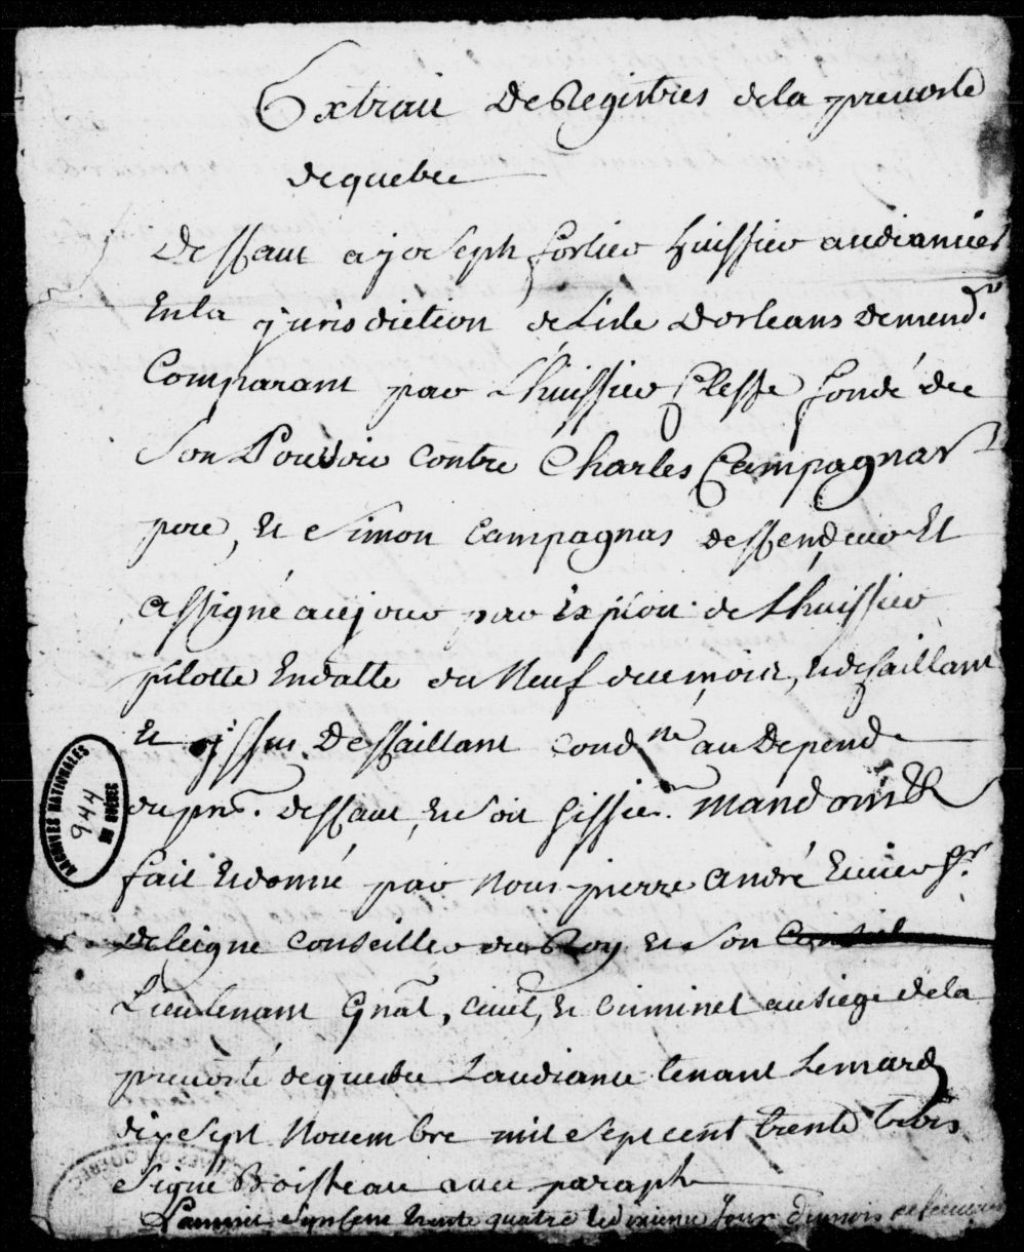 Extrait De Registres de la prevoste
de quebec
Deffaut a joseph fortier huissier audiancier
En la jurisdiction de Lisle Dorleans Demendr
Comparant par Lhuissier Clesse fondé de
Son Pouvoir Contre Charles Campagnas
pere, Et Simon Campagnas deffendeur Et
assigné au jour par Exploit de Lhuissier
pilotte En datte du Neuf du mois, Et deffaillant
Et Deffaillant Cond ne au Depend
du pnt. deffaut, Et Soit Signiffié. Mandons &
fait Et donné par Nous pierre André Ecuier Sr.
de leigne Conseiller du Roy Et Son Conseil
Lieutenant Gnal, Civil, Et Criminel au Siege de la
prevosté de quebec Laudiance tenant Le mardy
dix Sept Novembre mil Sept cent trente trois
Signé Boisseau avec paraphe
Lannee Sept Cent trente quatre le dixieme Jour du mois
ARCHIVES NATIONALES
944
DU QUÉBEC